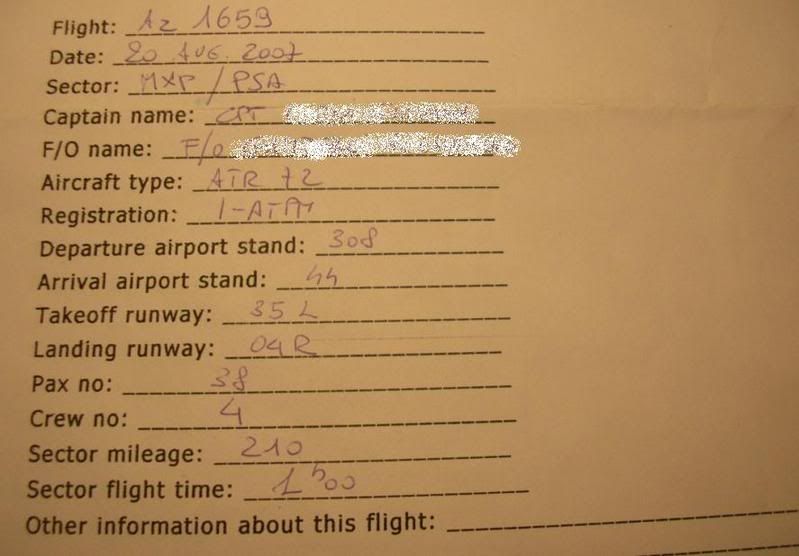 Flight: AZ 1659
Date: 20 AUG. 2007
Sector: MXP / PSA
Captain name: CPT
F/O name: F/O
Aircraft type: ATR 72
Registration:
Departure airport stand: 308
Arrival airport stand: 44
Takeoff runway: 35 L
Landing runway: 04R
Pax no: 38
Crew no: 4
Sector mileage: 210
Sector flight time: 1h00
Other information about this flight: